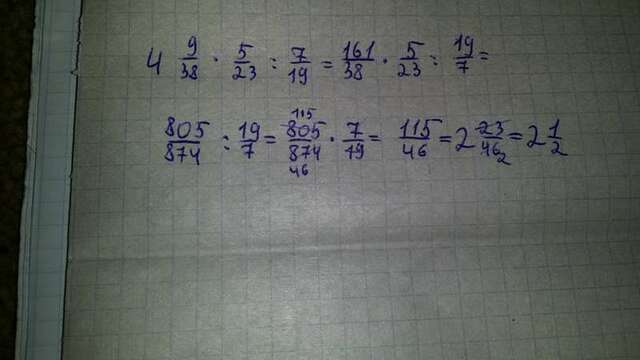 4 9/38 · 5/23 : 7/19 = 161/38 · 5/23 : 19/7 =
805/874 : 19/7 = 805/874 115 46 · 7/19 = 115/46 = 2 23/46 2 = 2 1/2